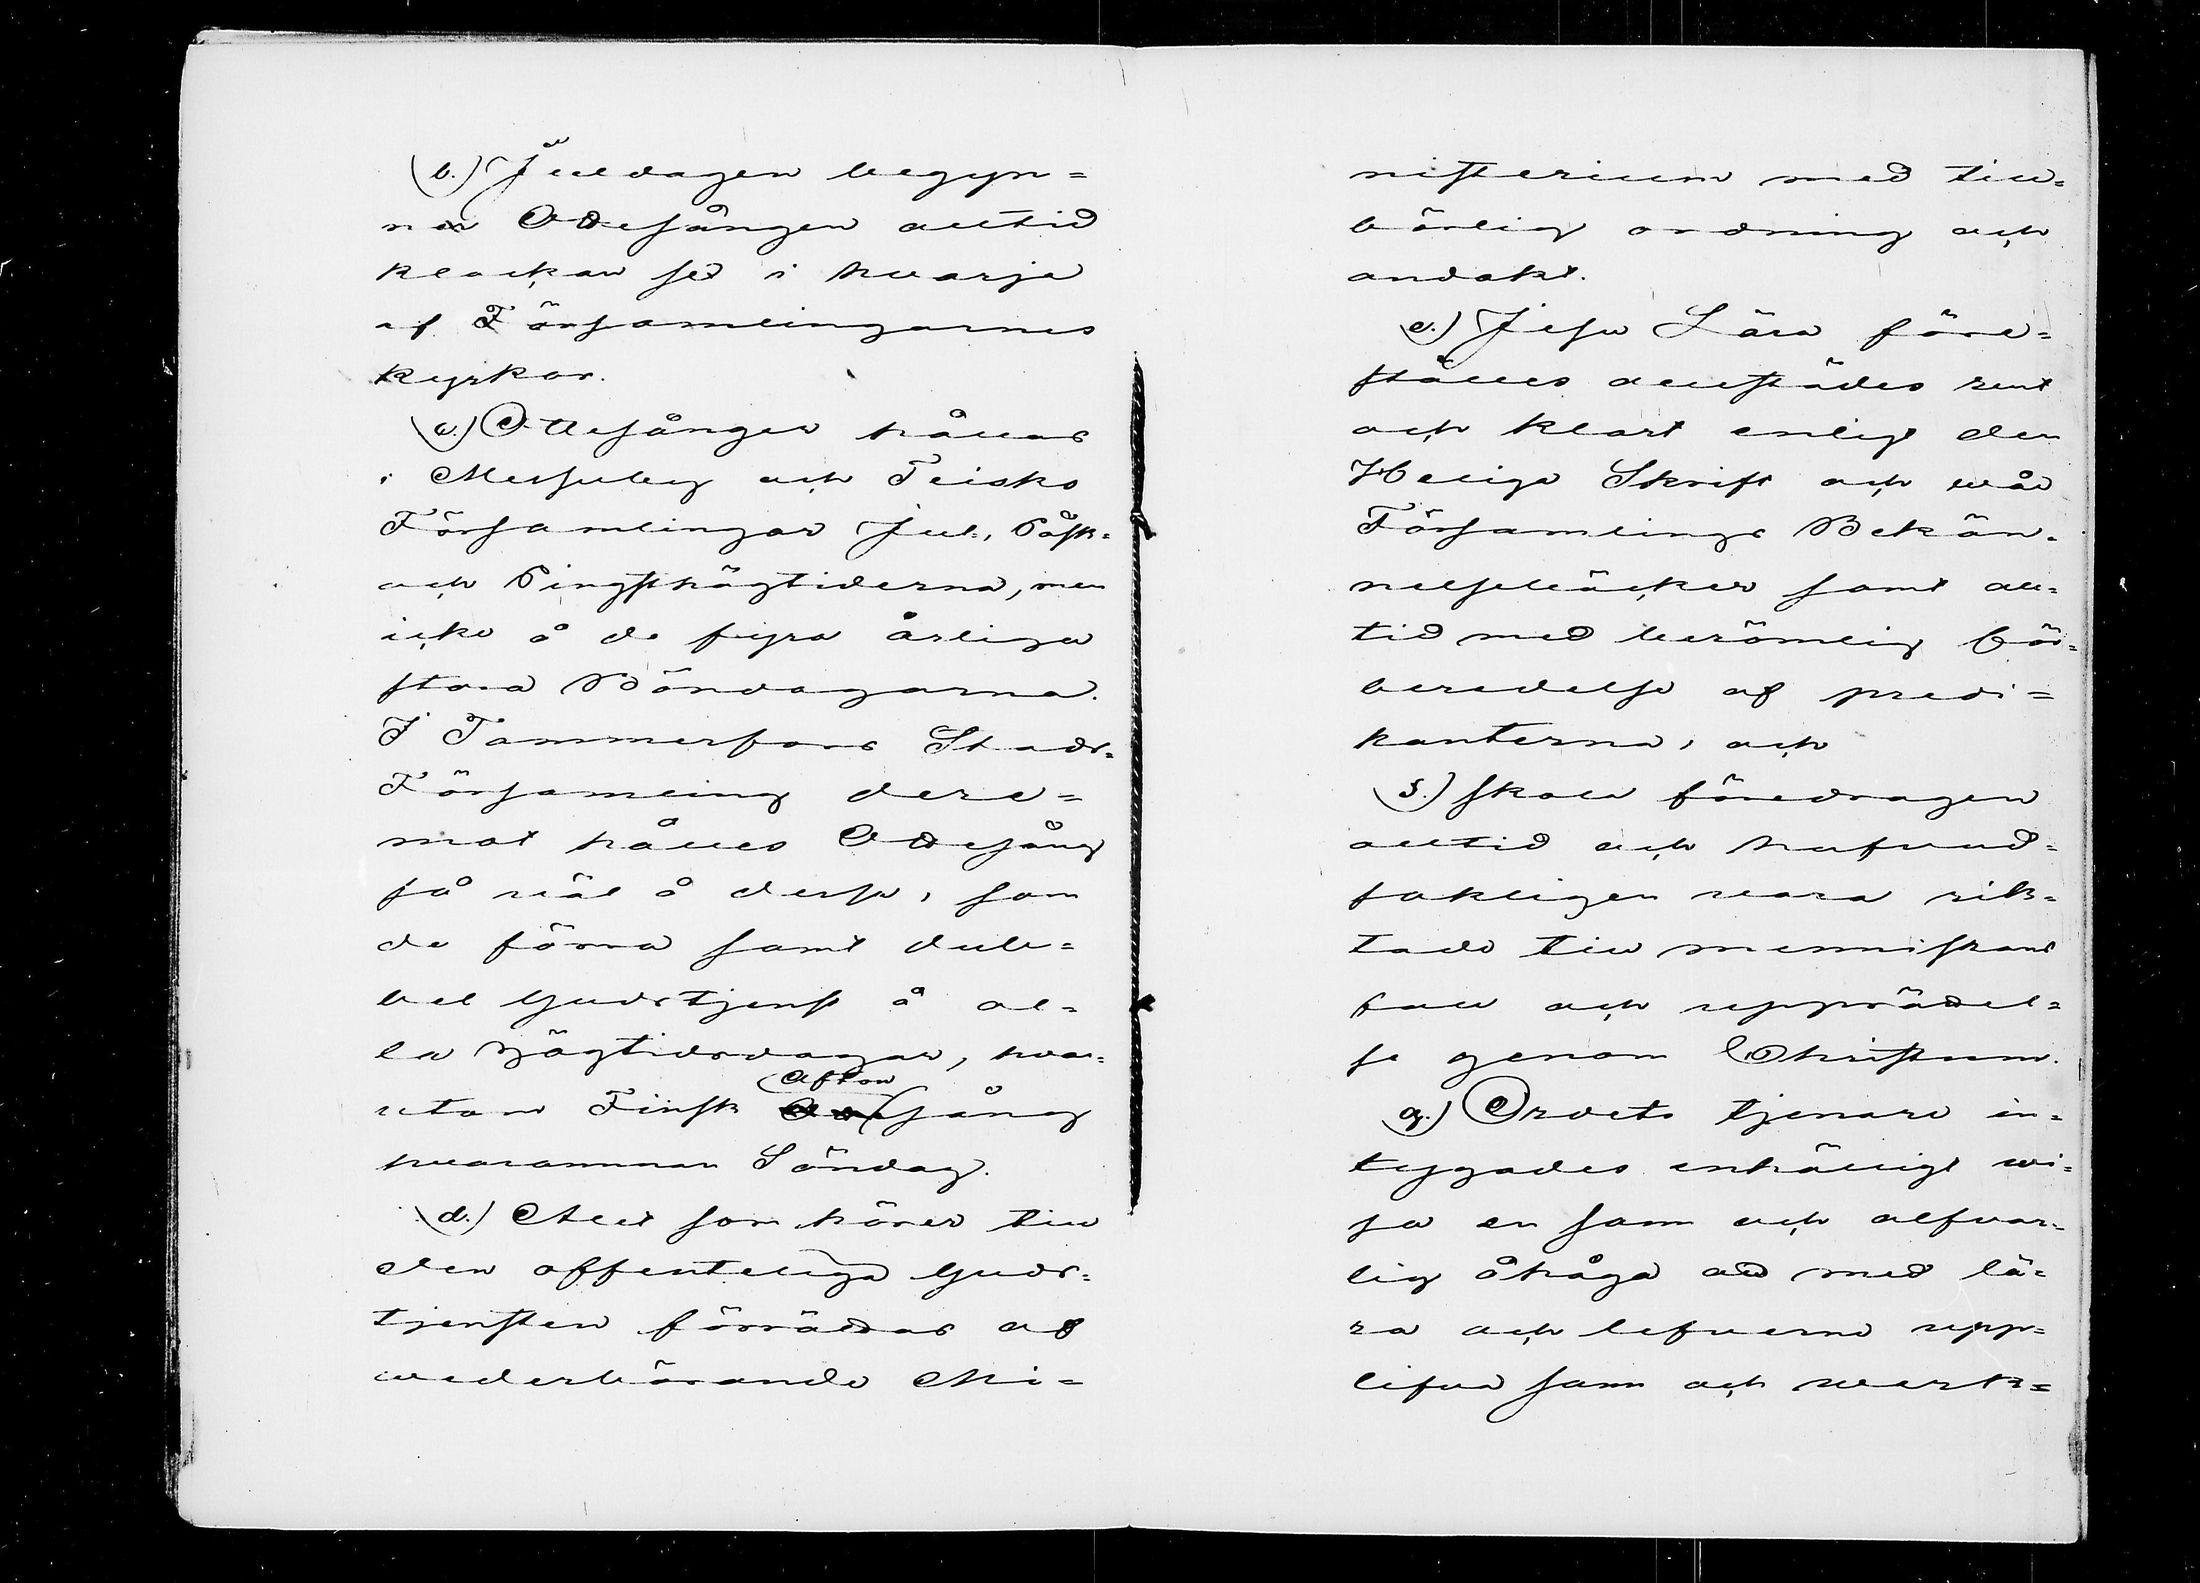 b.) Juldagen begyn=
ner Ottesången alltid
klockan sex i hvarje
af Församlingarnes
kyrkor.
c.) Ottesånger hållas
i Messuby och Teisko
Församlingar Jul-, Påsk-
och Pingsthögtiderna, men
icke å de fyra årliga
stora Böndagarna.
I Tammerfors Stads-
Församling dere=
mot hålles Ottesång
så väl å dessa, som
de förra samt dub=
bel Gudstjenst å al=
la högtidsdagar, hvar-
utom Finsk Aftonsång
hvarannan Söndag.
d.) Allt som hörer till
den offenteliga Guds-
tjensten förrättas af
wederbörande Mi=
nisterium med till-
börlig ordning och
andakt.
e.) Jesu Lära före=
ställes allestädes rent
och klart enligt den
Heliga Skrift och wår
Församlings Bekän-
nelseböcker samt all-
tid med berömlig för-
beredelse af predi=
kanterna, och
f.) skola föredragen
alltid och hufvud-
sakligen vara rik-
tade till menniskans
fall och upprättel=
se genom Christum.
g.) Ordets tjenare in-
tygades enhälligt wi-
sa en sann och alfvar-
lig åhåga att med lä-
ra och lefverne upp-
lifva sann och werk=